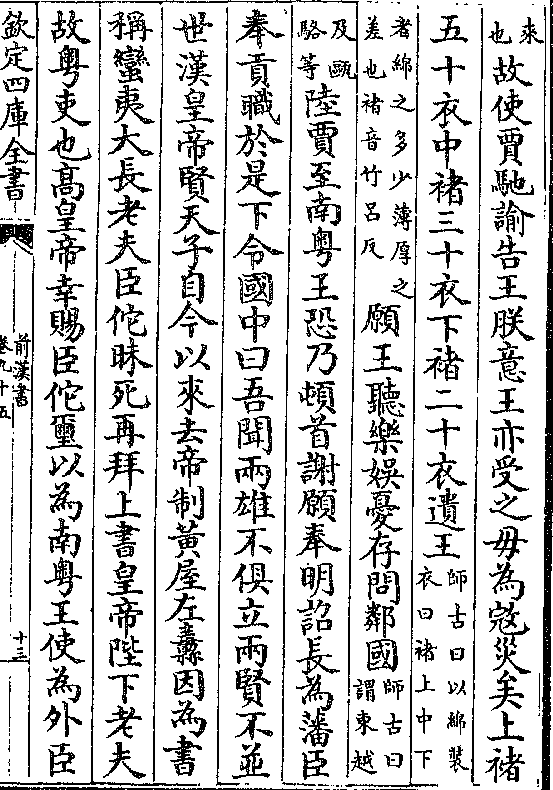 來也故使賈馳諭告王朕意王亦受之毋為寇災矣上褚
五十衣中褚三十衣下褚二十衣遺王師古曰以綿裝衣曰褚上中下
者綿之多少薄厚之差也褚音竹呂反願王聽樂娛憂存問鄰國師古曰謂東越
及甌駱等陸賈至南粤王恐乃頓首謝願奉明詔長為藩臣
奉貢職於是下令國中曰吾聞兩雄不俱立兩賢不並
世漢皇帝賢天子自今以來去帝制黃屋左纛因為書
稱蠻夷大長老夫臣佗昧死再拜上書皇帝陛下老夫
故粤吏也高皇帝幸賜臣佗璽以為南粤王使為外臣
欽定四庫全書
前漢書
卷九十五
十三